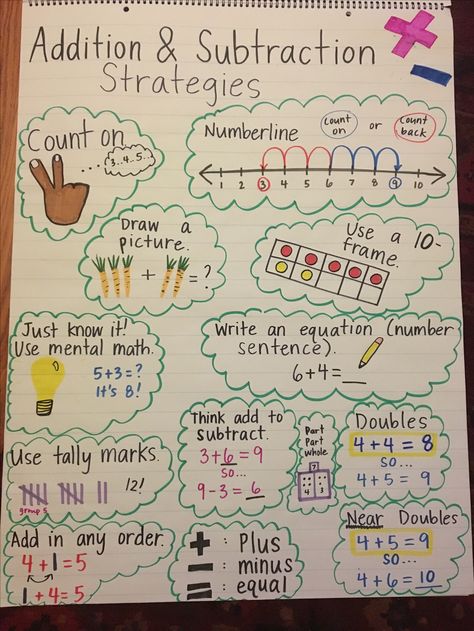 Addition & Subtraction
Strategies
Count on
3..4..5...
Numberline
Count on
or
Count back
1 2 3 4 5 6 7 8 9 10
Draw a
picture.
+ = ?
Use a 10-
frame.
Just know it!
Use mental math.
5+3=?
It's 8!
Write an equation (number
sentence).
6+4=__
Use tally marks.
12!
group 5
Think add to
subtract.
3+6=9
so...
9-3=6
Part
Part
whole
7
Doubles
4+4=8
so...
4+5=9
Add in any order.
4+1=5
1+4=5
+ : Plus
- : minus
= : equal
Near Doubles
4+5=9
so...
4+6=10